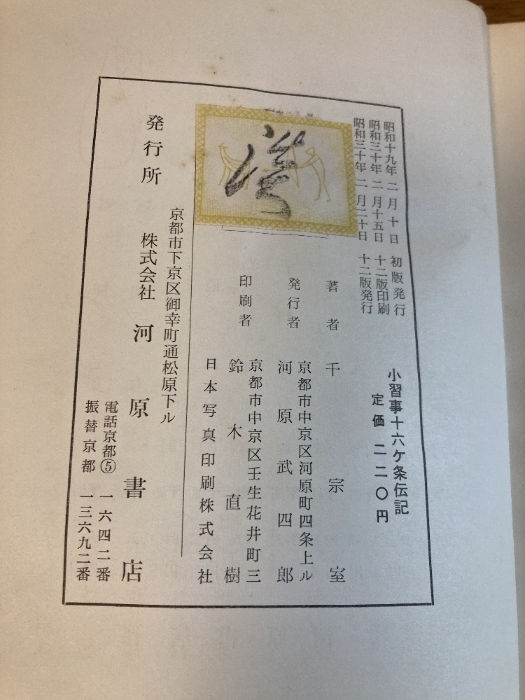 小習事十六ケ条伝記
定価 二二〇円
昭和十九年 二月十日 初版発行
昭和三十年 二月十五日 十二版印刷
昭和三十年 二月二十日 十二版発行
著者 千宗室
京都市中京区河原町四条上ル
発行者 河原武四郎
京都市中京区壬生花井町三
印刷者 鈴木直樹
日本写真印刷株式会社
京都市下京区御幸町通松原下ル
発行所 株式会社 河原書店
電話京都⑤ 一六四二番
振替京都 一三六九二番